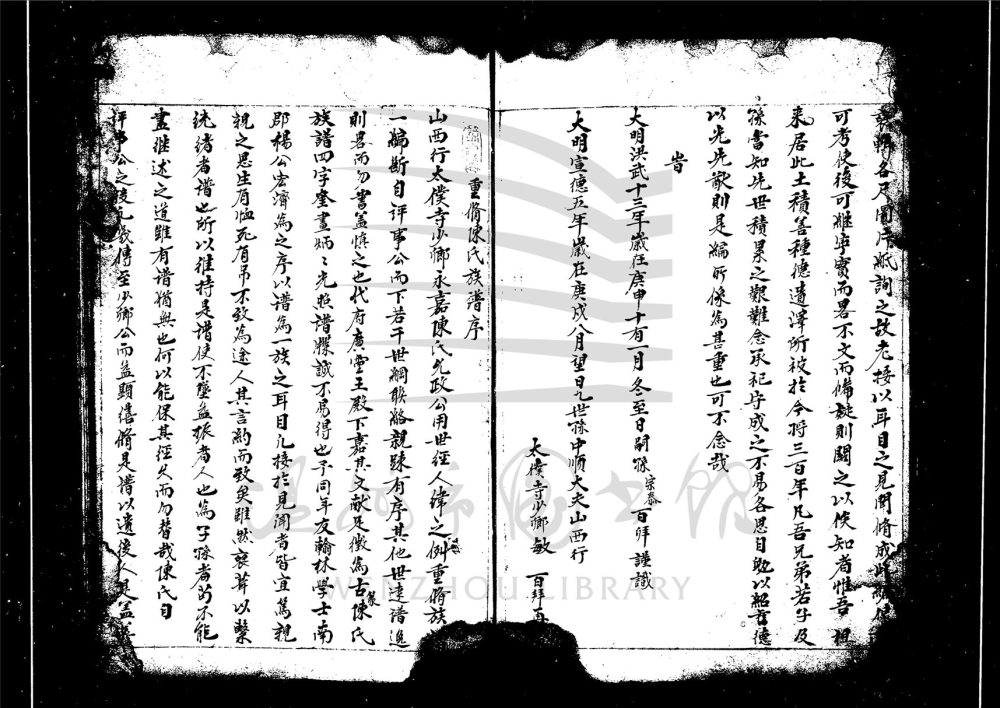 輯各尺圖片紙詢之故老接以耳目之見聞脩成此
可考使後可繼實而畧不文而備疑則闕之以俟知者惟吾祖
來居此土積善種德遺澤所被於今將三百年凡吾兄弟若子及
孫當知先世積累之艱難念承祀守成之不易各思自勉以紹前德
以光先猷則是編所係為甚重也可不念哉
旹
大明洪武十三年歲在庚申十有一月冬至日嗣孫宗泰百拜謹識
大明宣德五年歲在庚戌八月望日九世孫中順大夫山西行
太僕寺少卿敏 百拜
重脩陳氏族譜序
山西行太僕寺少卿永嘉陳氏允政公用世經人緯之例重脩族
一編斷自評事公而下若干世綱聯絡親疎有序其他世遠譜逸
則畧而勿書蓋慎之也代府廣靈王殿下嘉其文獻足徵為古陳氏
族譜四字奎畫炳〻光照譜牒誠不易得也予同年友翰林學士南
郡楊公宏濟為之序以譜為一族之耳目凡接於見聞者皆宜篤親
親之恩生有恤死有弔不致為途人其言約而致矣雖然裒葺以繫
統緒者譜也所以維持是譜使不墜益振者人也為子孫者苟不能
盡繼述之道雖有譜猶無也何以能保其經久而勿替哉陳氏自
評事公之後凡幾傳至少卿公而益顯僖脩是譜以遺後人是蓋
温州市图书馆
WENZHOU LIBRARY